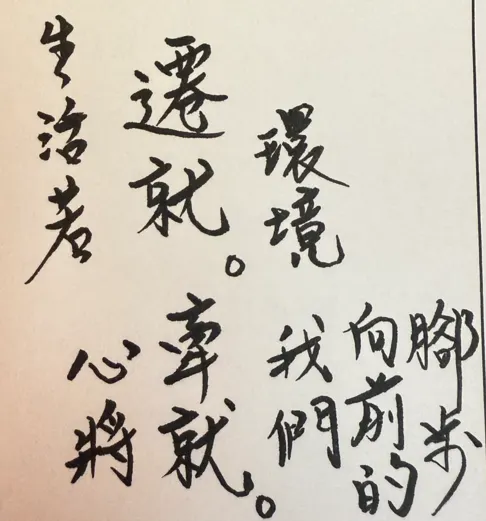 生活若
遷就。
環境
心將
牽就。
我們
向前的
腳步